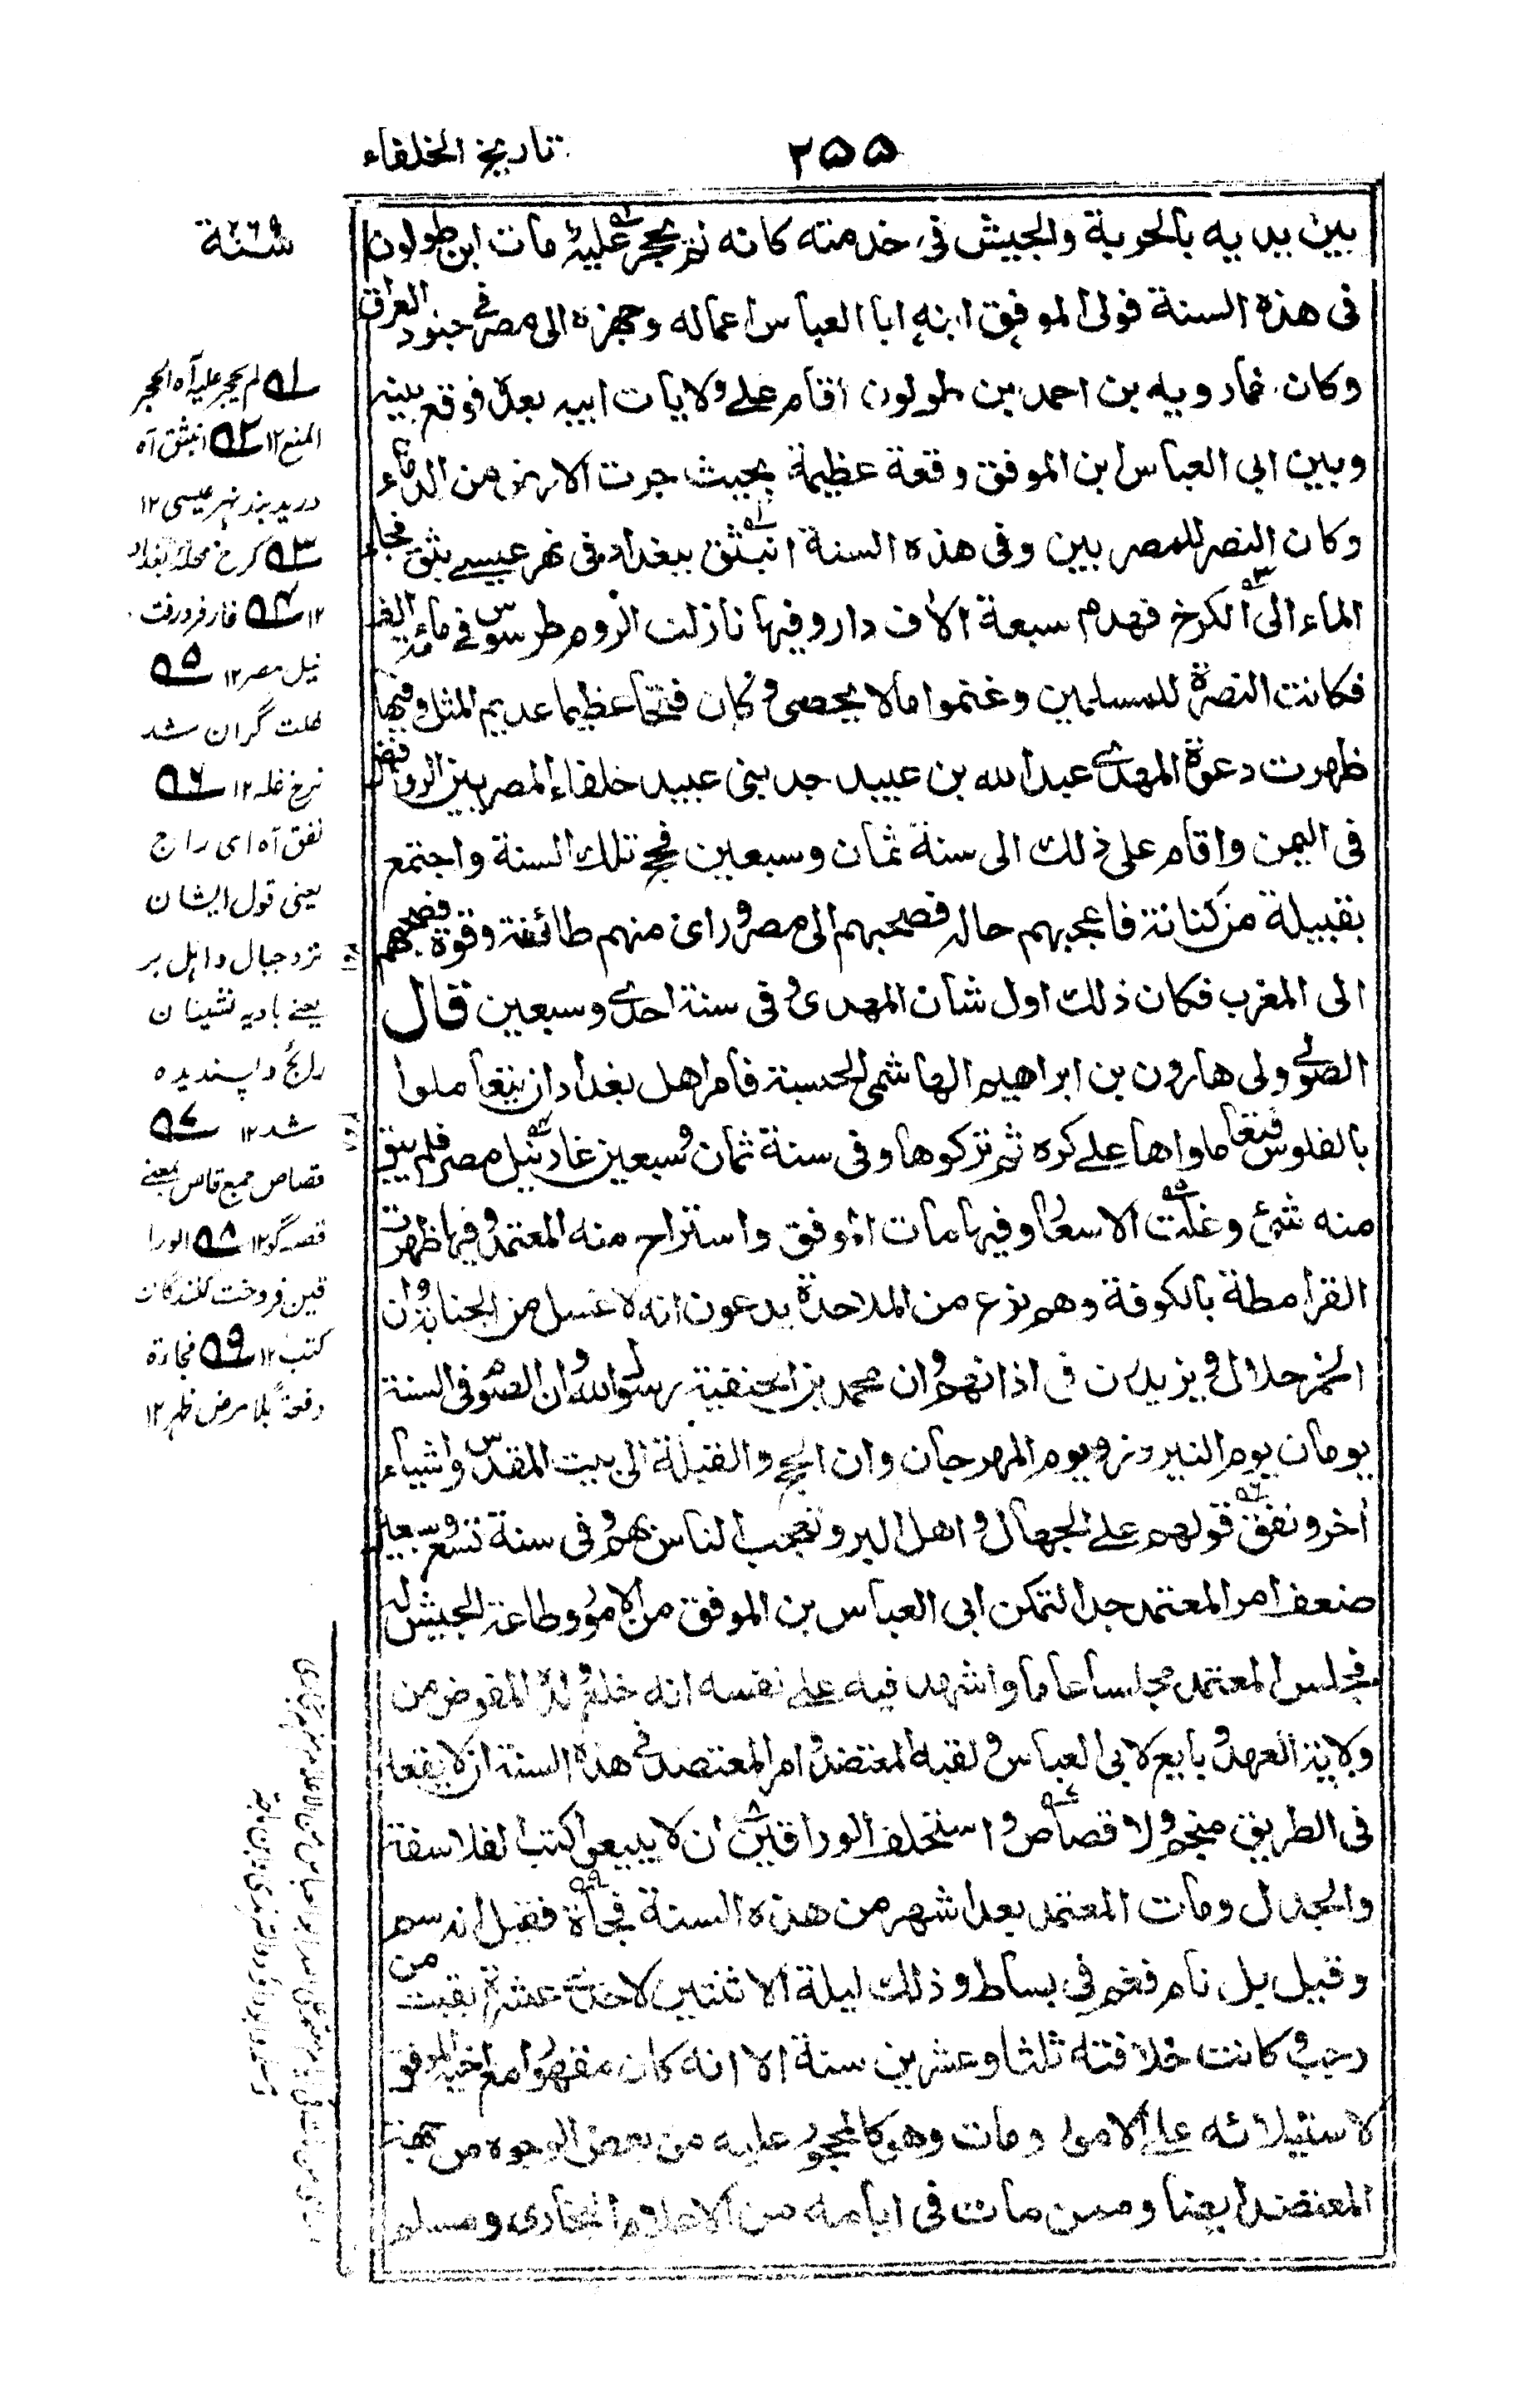 تاريخ الخلفاء
٢٥٥
سنة ٢٦٩
بين يديه بالحربة والجيش في خدمته كانه لم يحجر عليه مات ابن طولون
فى هذه السنة فولى الموفق ابنه ابا العباس اعماله وجهزه الى مصر فى جنود العراق
وكان خمارويه بن احمد بن طولون اقام على ولايات ابيه بعده فوقع بينه
وبين ابي العباس ابن الموفق وقعة عظيمة بحيث جرت الارض من الدماء
وكان النصر للمصريين وفى هذه السنة انبثق ببغداد فى نهر عيسى بثق فجاء
الماء الى الكرخ فهدم سبعة الاف دار وفيها نازلت الروم طرسوس فى مائة الف
فكانت النصرة للمسلمين وغنموا مالا يحصى وكان فتحا عظيما عديم المثل وفيها
ظهرت دعوة المهدى عبد الله بن عبيد جد بنى عبيد خلفاء المصريين الروافض
فى اليمن واقام على ذلك الى سنة ثمان وسبعين فحج تلك السنة واجتمع
بقبيلة من كنانة فاعجبهم حاله فصحبهم الى مصر وراى منهم طائفة وقوة فصحبهم
الى المغرب فكان ذلك اول شان المهدى وفى سنة احدى وسبعين قال
الصولى ولى هارون بن ابراهيم الهاشمى الحسبة فامر اهل بغداد ان يتعاملوا
بالفلوس فتعاملوا بها على كره ثم تركوها وفى سنة ثمان وسبعين غار نيل مصر فلم يبق
منه شئ وغلت الاسعار وفيها مات الموفق واستراح منه المعتمد وفيها ظهرت
القرامطة بالكوفة وهم نوع من الملاحدة يدعون انه لا غسل من الجنابة وان
الخمر حلال ويزيدون فى اذانهم وان محمد بن الحنفية رسول الله وان الصوم فى السنة
يومان يوم النيروز ويوم المهرجان وان الحج والقبلة الى بيت المقدس واشياء
أخر ونفق قولهم على الجهال واهل البر وتعجب الناس بهم وفى سنة تسع وسبعين
ضعف امر المعتمد جدا لتمكن ابى العباس بن الموفق من الامور وطاعة الجيش له
فجلس المعتمد مجلسا عاما واشهد فيه على نفسه انه خلع ولده المفوض من
ولاية العهد وبايع لابى العباس ولقبه المعتضد وامر المعتضد فى هذه السنة ان لا يقعد
فى الطريق منجم ولا قصاص واستحلف الوراقين ان لا يبيعوا كتب الفلاسفة
والجدل ومات المعتمد بعد اشهر من هذه السنة فجأة فقيل انه سم
وقيل بل نام فغم فى بساط وذلك ليلة الاثنتين لاحدى عشرة بقيت من
رجب وكانت خلافته ثلثا وعشرين سنة الا انه كان مقهورا مع اخيه الموفق
لاستيلائه على الامور ومات وهو كالمحجور عليه من بعض الوجوه من جهة
المعتضد ايضا وممن مات فى ايامه من الاعلام البخارى ومسلم
ـه١ لم يحجر عليه آه الحجر
المنع١٢ ـه٢ انبثق آه
دريد بند نهر عيسى١٢
ـه٣ كرخ محلة بغداد
١٢ ـه٤ غار فرو رفت
نيل مصر١٢ ـه٥
غلت گران شد
نرخ غله١٢ ـه٦
نفق آه اى راج
يعنى قول ايشان
نزد جهال واہل بر
يعنے باديہ نشينان
رائج و پسنديده
شد١٢ ـه٧
قصاص جمع قاص بمعنے
قصہ گو١٢ ـه٨ الورا
قين فروخت كنندگان
كتب١٢ ـه٩ فجاءة
دفعة بلا مرض ظہر١٢